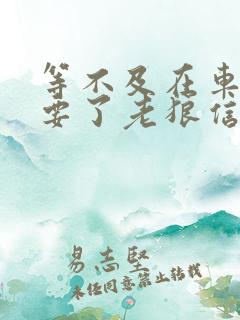 等不及在车
要了老狼信
易志坚
未经同意禁止转载